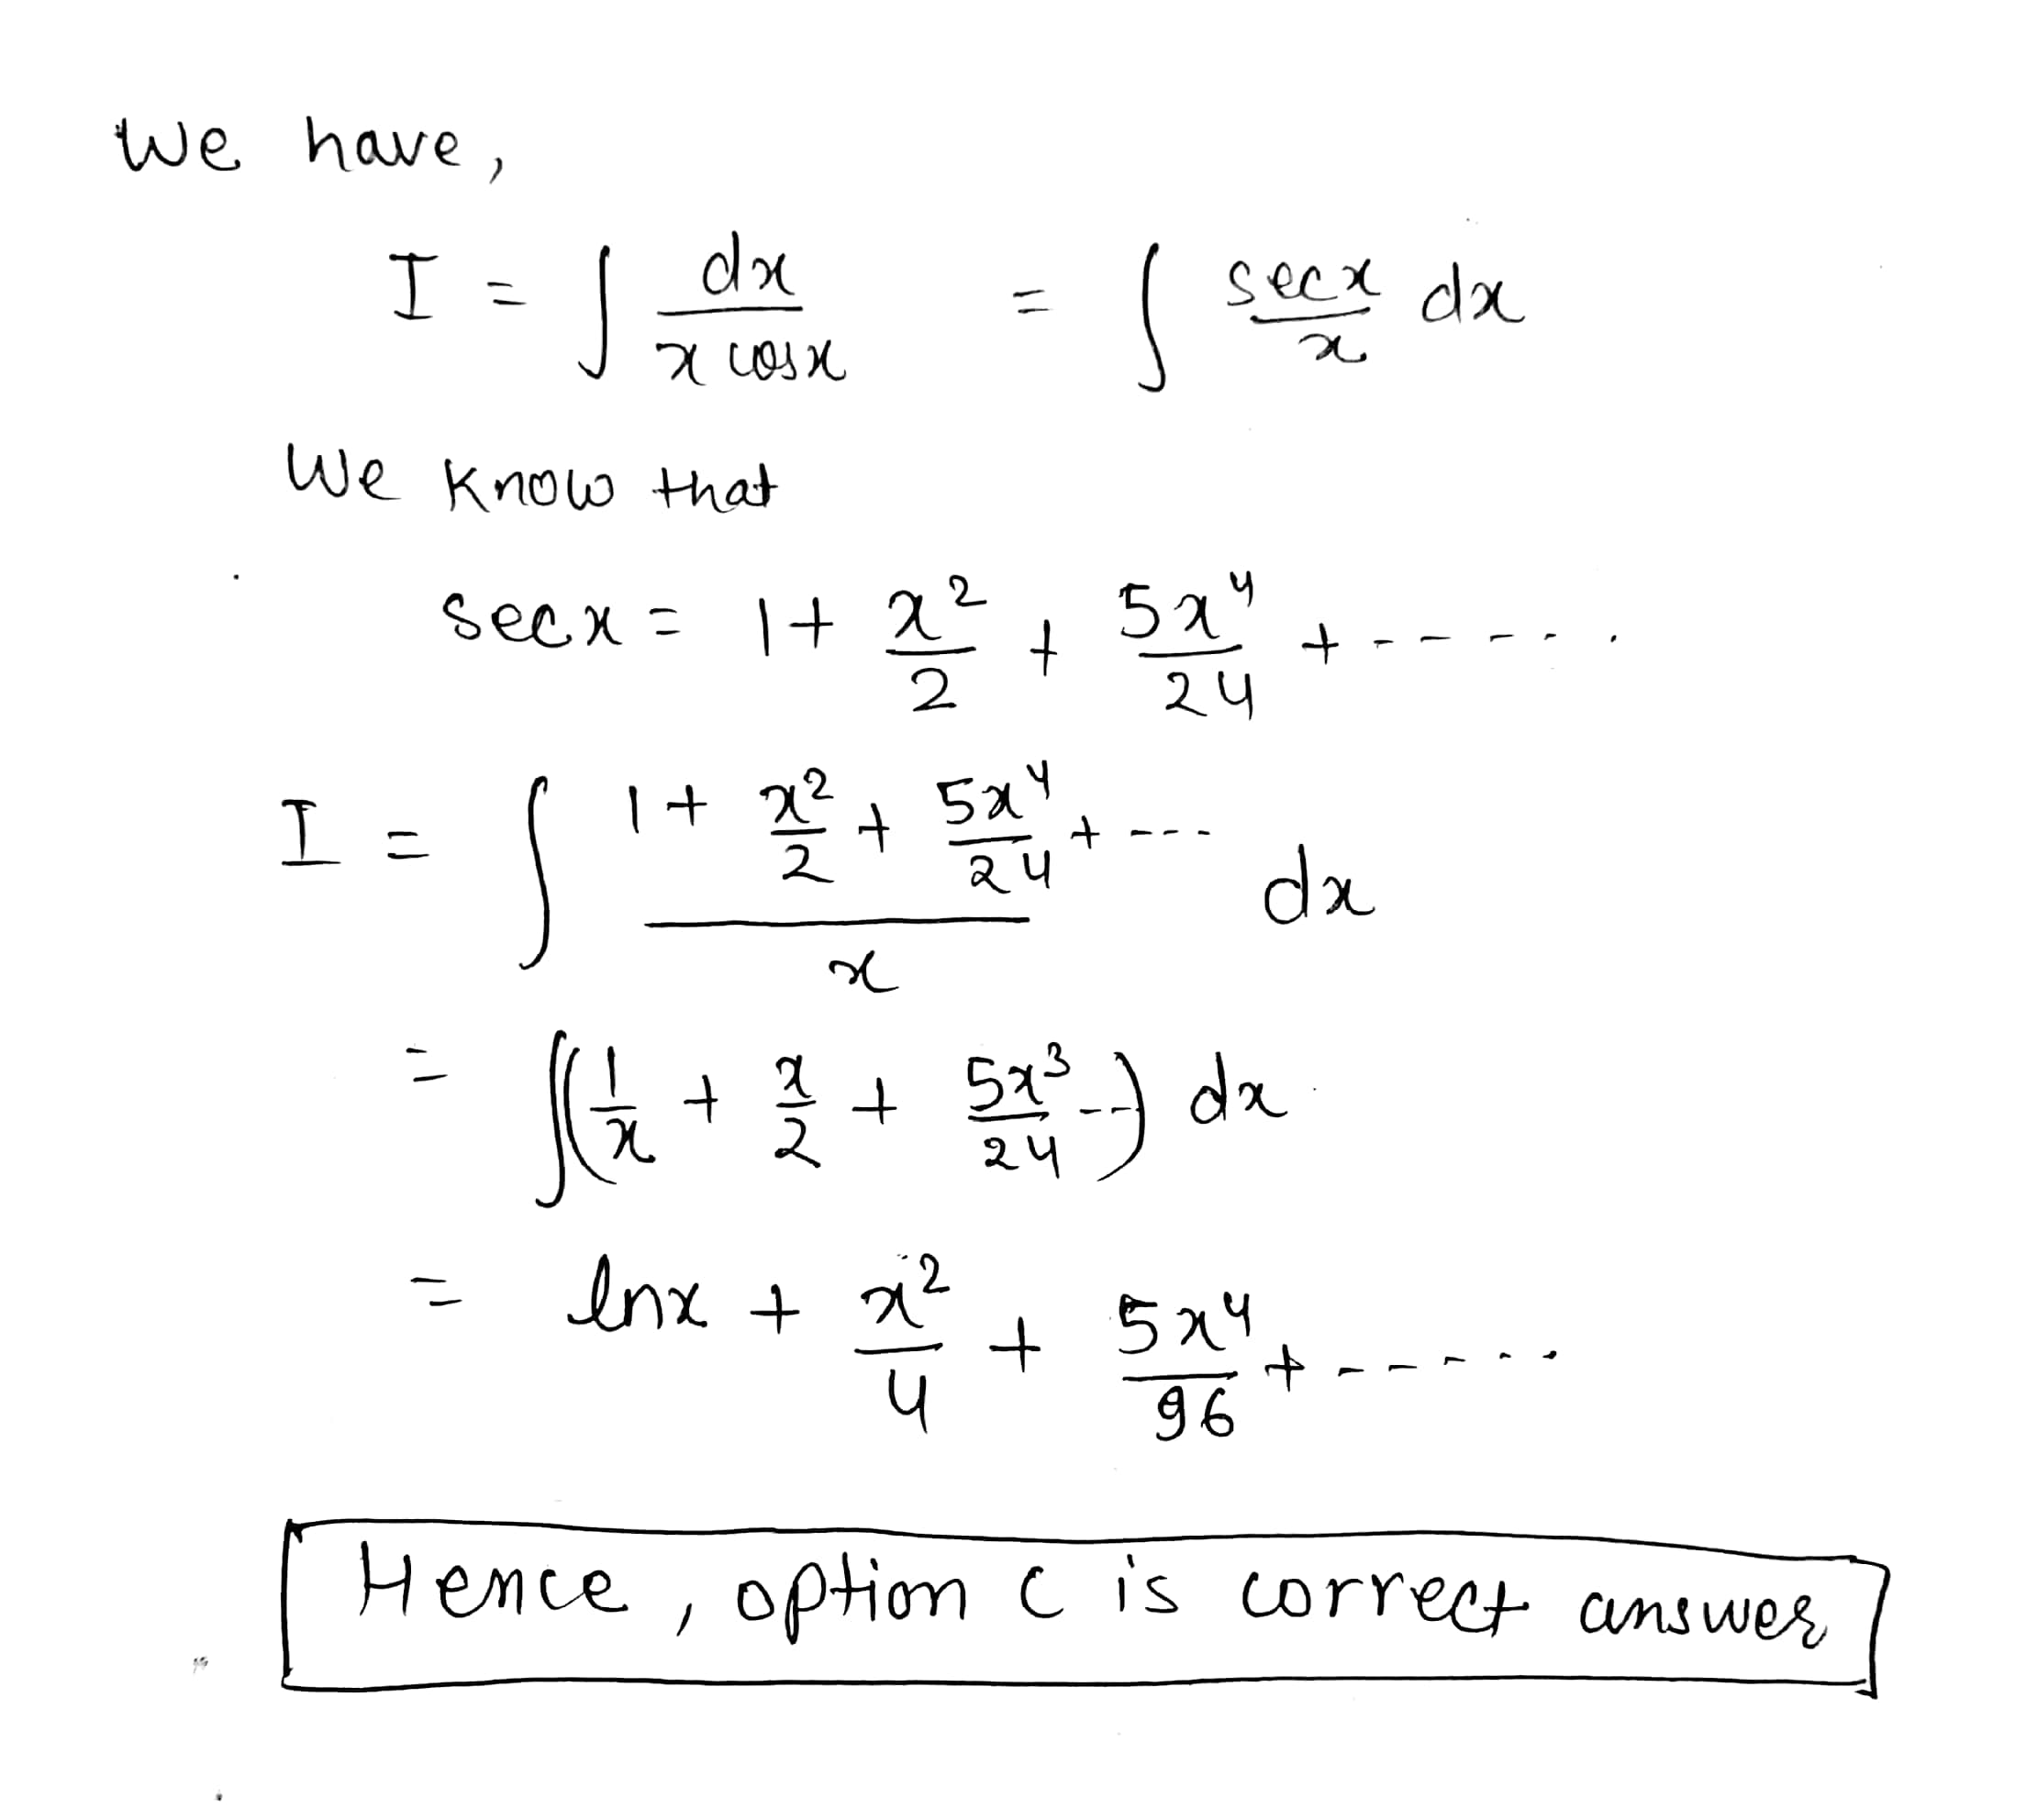 We have,
I = ∫ dx / x cosx = ∫ secx / x dx
We know that
secx = 1 + x² / 2 + 5x⁴ / 24 + - - - - - .
I = ∫ 1 + x² / 2 + 5x⁴ / 24 + - - - / x dx
= ∫( 1 / x + x / 2 + 5x³ / 24 - - -) dx
= lnx + x² / 4 + 5x⁴ / 96 + - - - - - -
Hence, option C is correct answer